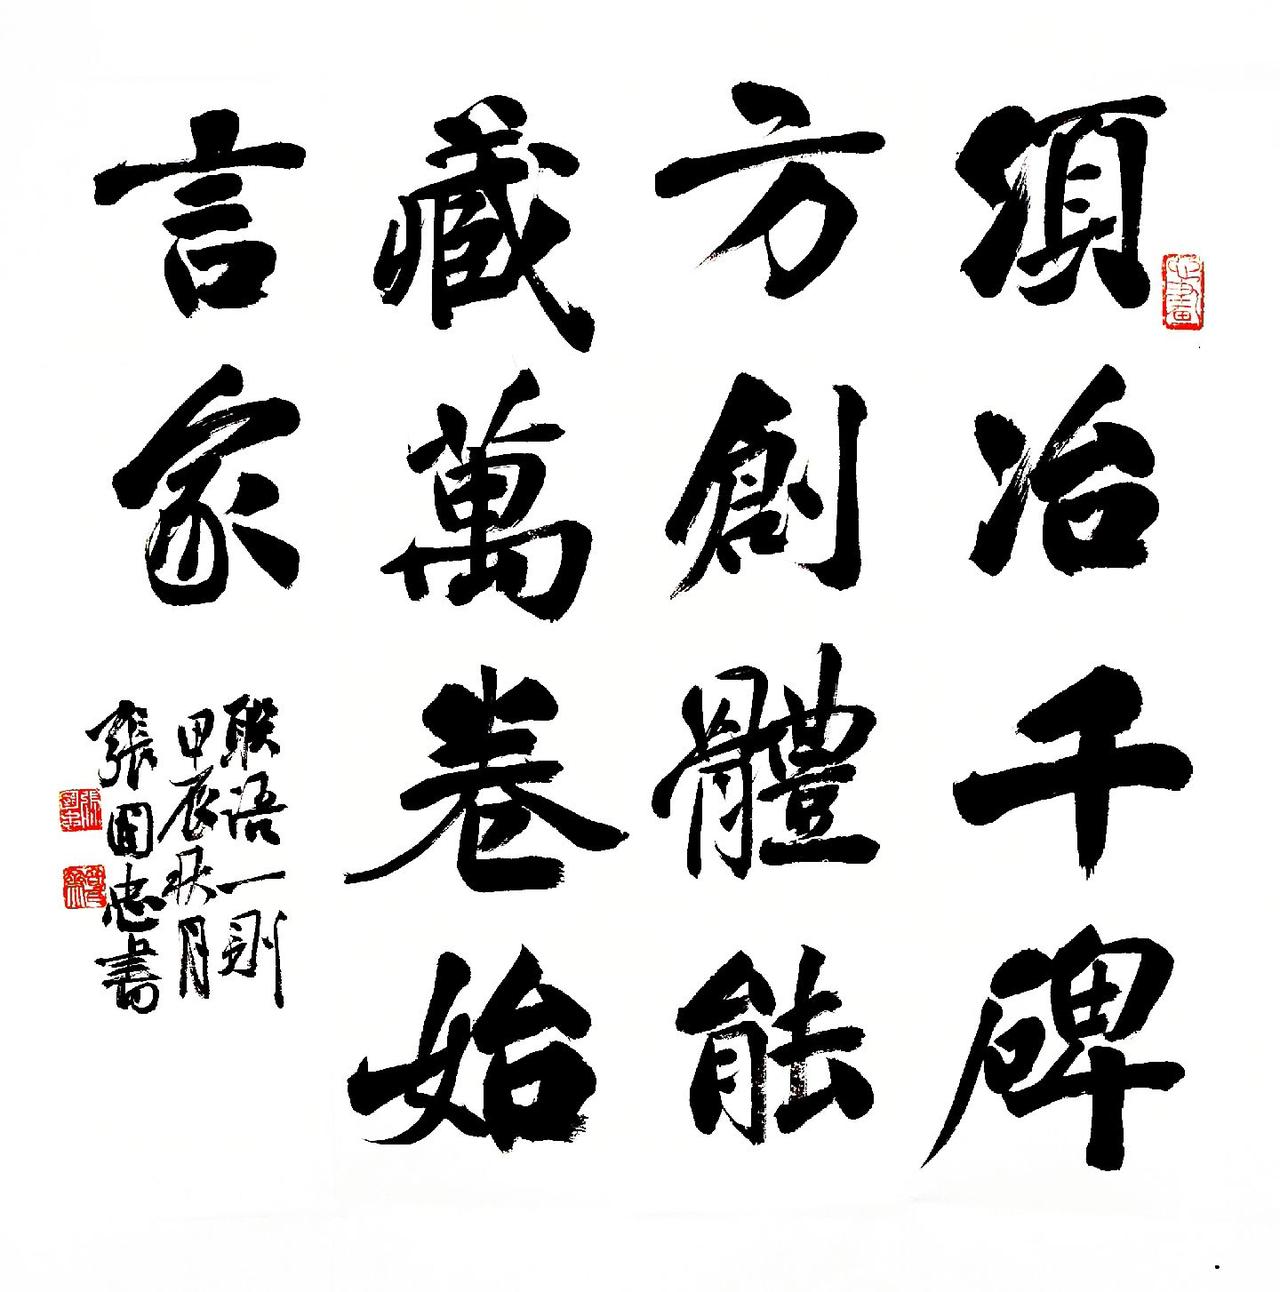 須冶千碑
方創體能
藏萬卷始
言家
聯语一則
甲辰秋月
張国忠書